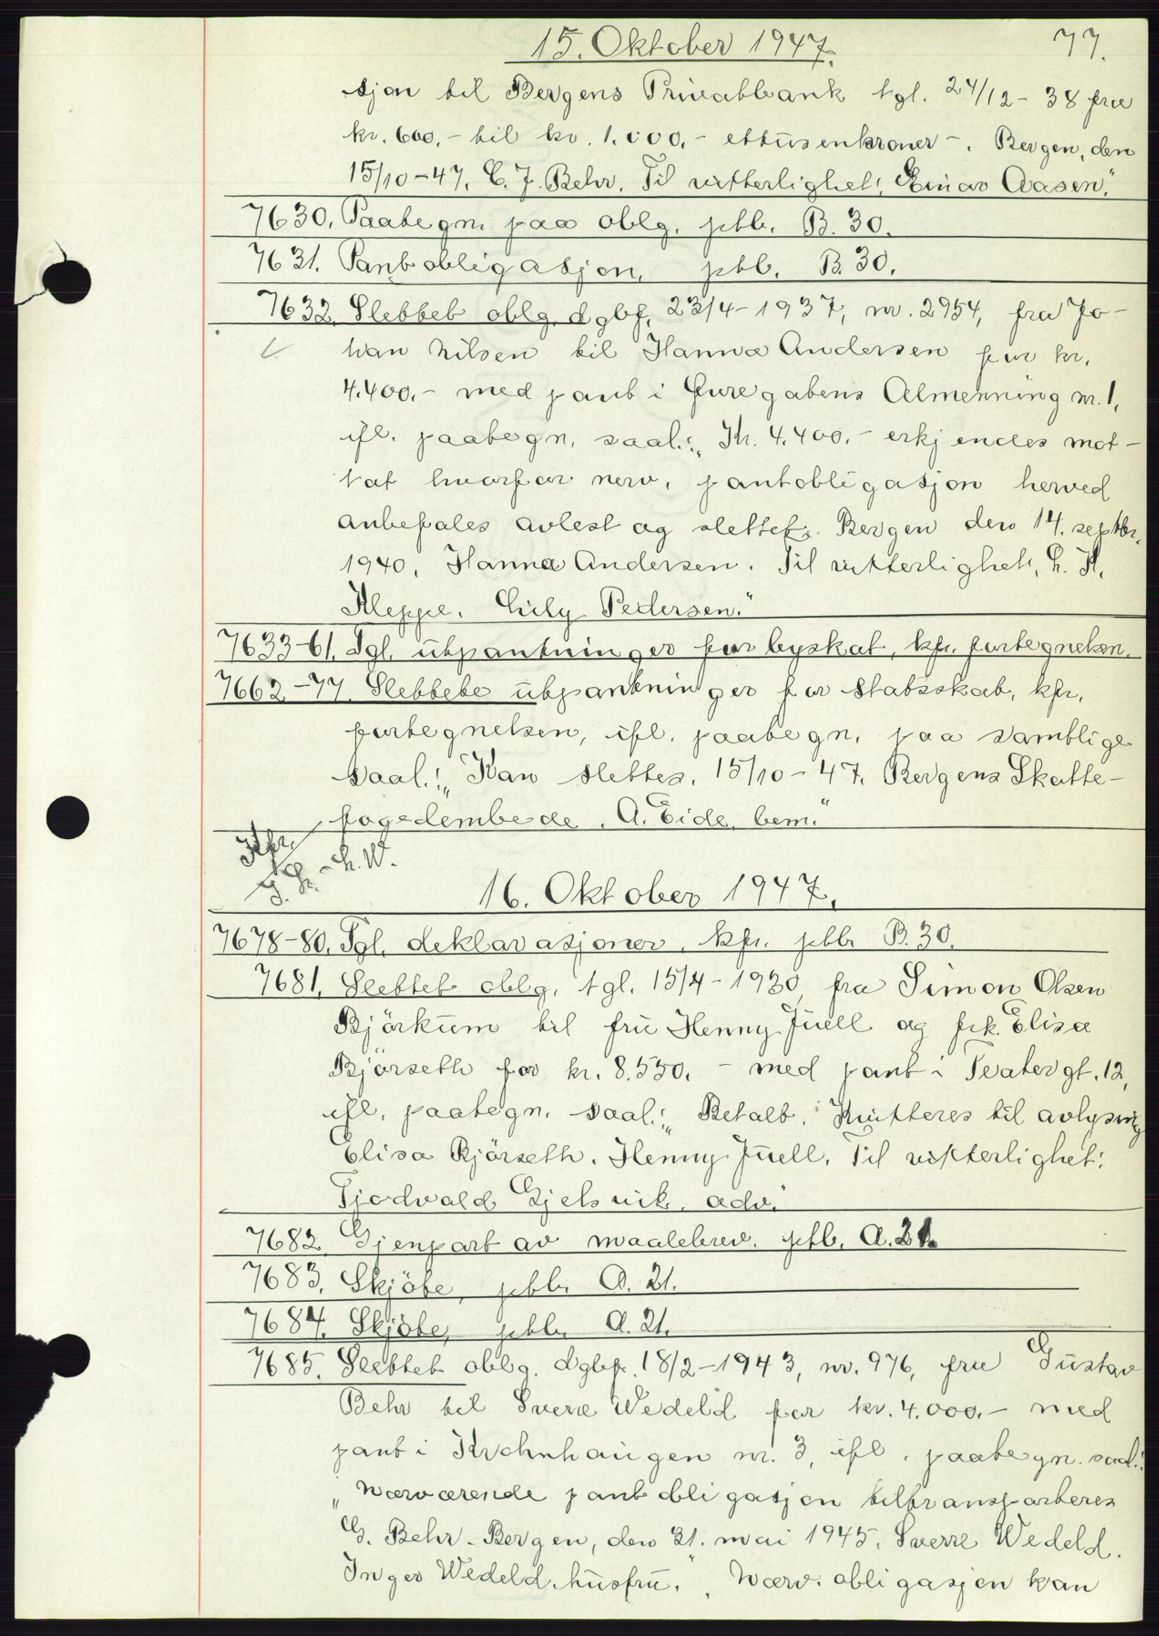 15. Oktober 1947. 77.
sjon til Bergens Privatbank tgl. 24/12 - 38 fra
kr. 600.- til kr. 1.000.- ettusenkroner -. Bergen, den
15/10-47. C. J. Behr. Til vitterlighet: Einar Aasen."
7630. Paategn. paa oblg. ptb. B. 30.
7631. Pantobligasjon, ptb. B. 30.
7632. Slettet oblg. dgbf. 23/4-1937, nr. 2954, fra Jo-
han Nilsen til Hanna Andersen for kr.
4.400.- med pant i Øuregatens Almenning nr. 1,
ifl. paategn. saal.: "Kr. 4.400.- erkjendes mot-
tat hvorfor nerv. pantobligasjon herved
anbefales avlest og slettet. Bergen den 14. septbr.
1940. Hanna Andersen. Til vitterlighet, H.
Kleppe. Lily Pedersen."
7633-61. Tgl. utpantninger for byskat, kfr. fortegnelsen.
7662-77. Slettete utpantninger for statsskat, kfr.
fortegnelsen, ifl. paategn. paa samtlige
saal.: "Kan slettes. 15/10-47. Bergens Skatte-
fogedembede. A. Eide bem."
Kfr.
16. Oktober 1947.
7678-80. Tgl. deklarasjoner, kfr. ptb. B. 30.
7681. Slettet oblg. tgl. 15/4-1930 fra Simon Olsen
Björkum til fru Henny Juell og frk. Elisa
Björseth for kr. 8.550.- med pant i Teatergt. 12,
ifl. paategn. saal.: "Betalt. Kvitteres til avlysning
Elisa Björseth. Henny Juell. Til vitterlighet:
Tjodvald Gjelsvik, adv."
7682. Gjenpart av maalebrev. ptb. A. 21.
7683. Skjöte, ptb. A. 21.
7684. Skjöte, ptb. A. 21.
7685. Slettet oblg. dgbf. 18/2-1943, nr. 976, fra Gustav
Behr til Sverre Wedeld for kr. 4.000.- med
pant i Krohnhaugen nr. 3, ifl. paategn. saal.:
"Nærværende pantobligasjon tiltransporteres
G. Behr - Bergen, den 31. mai 1945. Sverre Wedeld.
Inger Wedeld, husfru." "Nærv. obligasjon kan